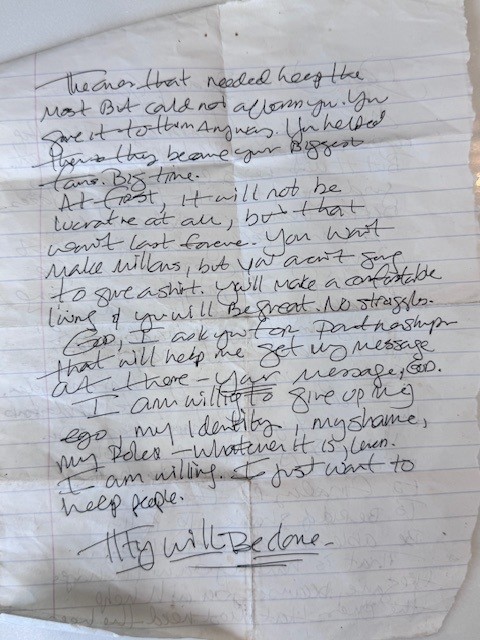 The ones that needed help the
most But could not afford you. You
gave it to them Anyways. You helped
them & they became your Biggest
fans. Big time.
At first, it will not be
lucrative at all, but that
won't last forever. You won't
make millions, but you aren't going
to give a shit. You'll make a comfortable
living & you will Be great. No struggles.
GOD, I ask you for partnership
that will help me get my message
out there – your message, GOD.
I am willing to give up my
ego, my identity, my shame,
my Roles – whatever it is,
I am willing. I just want to
help people.
Thy will Be done.